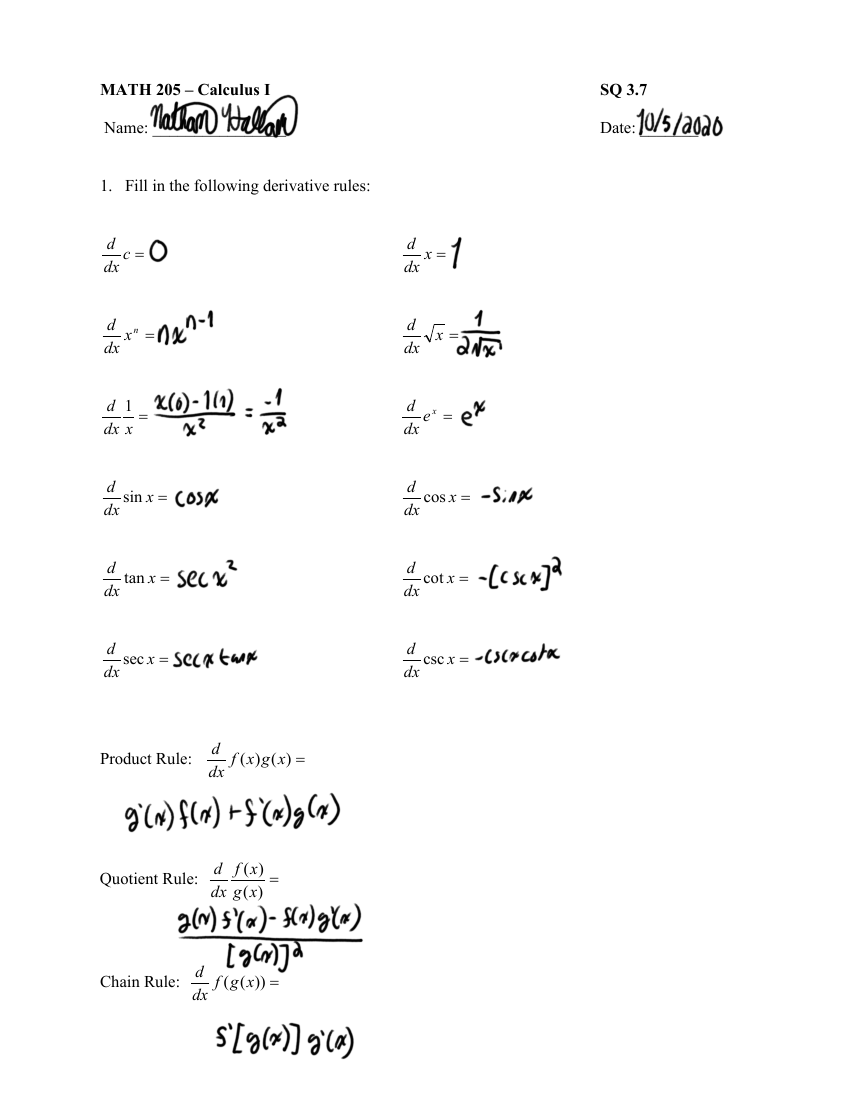 MATH 205 – Calculus I SQ 3.7
Name: Nathan Hallan Date: 10/5/2020
1. Fill in the following derivative rules:
d/dx c = 0 d/dx x = 1
d/dx xⁿ = nxⁿ⁻¹ d/dx √x = 1/(2√x)
d/dx 1/x = (x(0)-1(1))/x² = -1/x² d/dx eˣ = eˣ
d/dx sin x = cosx d/dx cos x = -sinx
d/dx tan x = sec x² d/dx cot x = -[cscx]²
d/dx sec x = secx tanx d/dx csc x = -cscxcotx
Product Rule: d/dx f(x)g(x) =
g'(x)f(x) + f'(x)g(x)
Quotient Rule: d/dx f(x)/g(x) =
(g(x)f'(x) - f(x)g'(x))/[g(x)]²
Chain Rule: d/dx f(g(x)) =
f'[g(x)] g'(x)